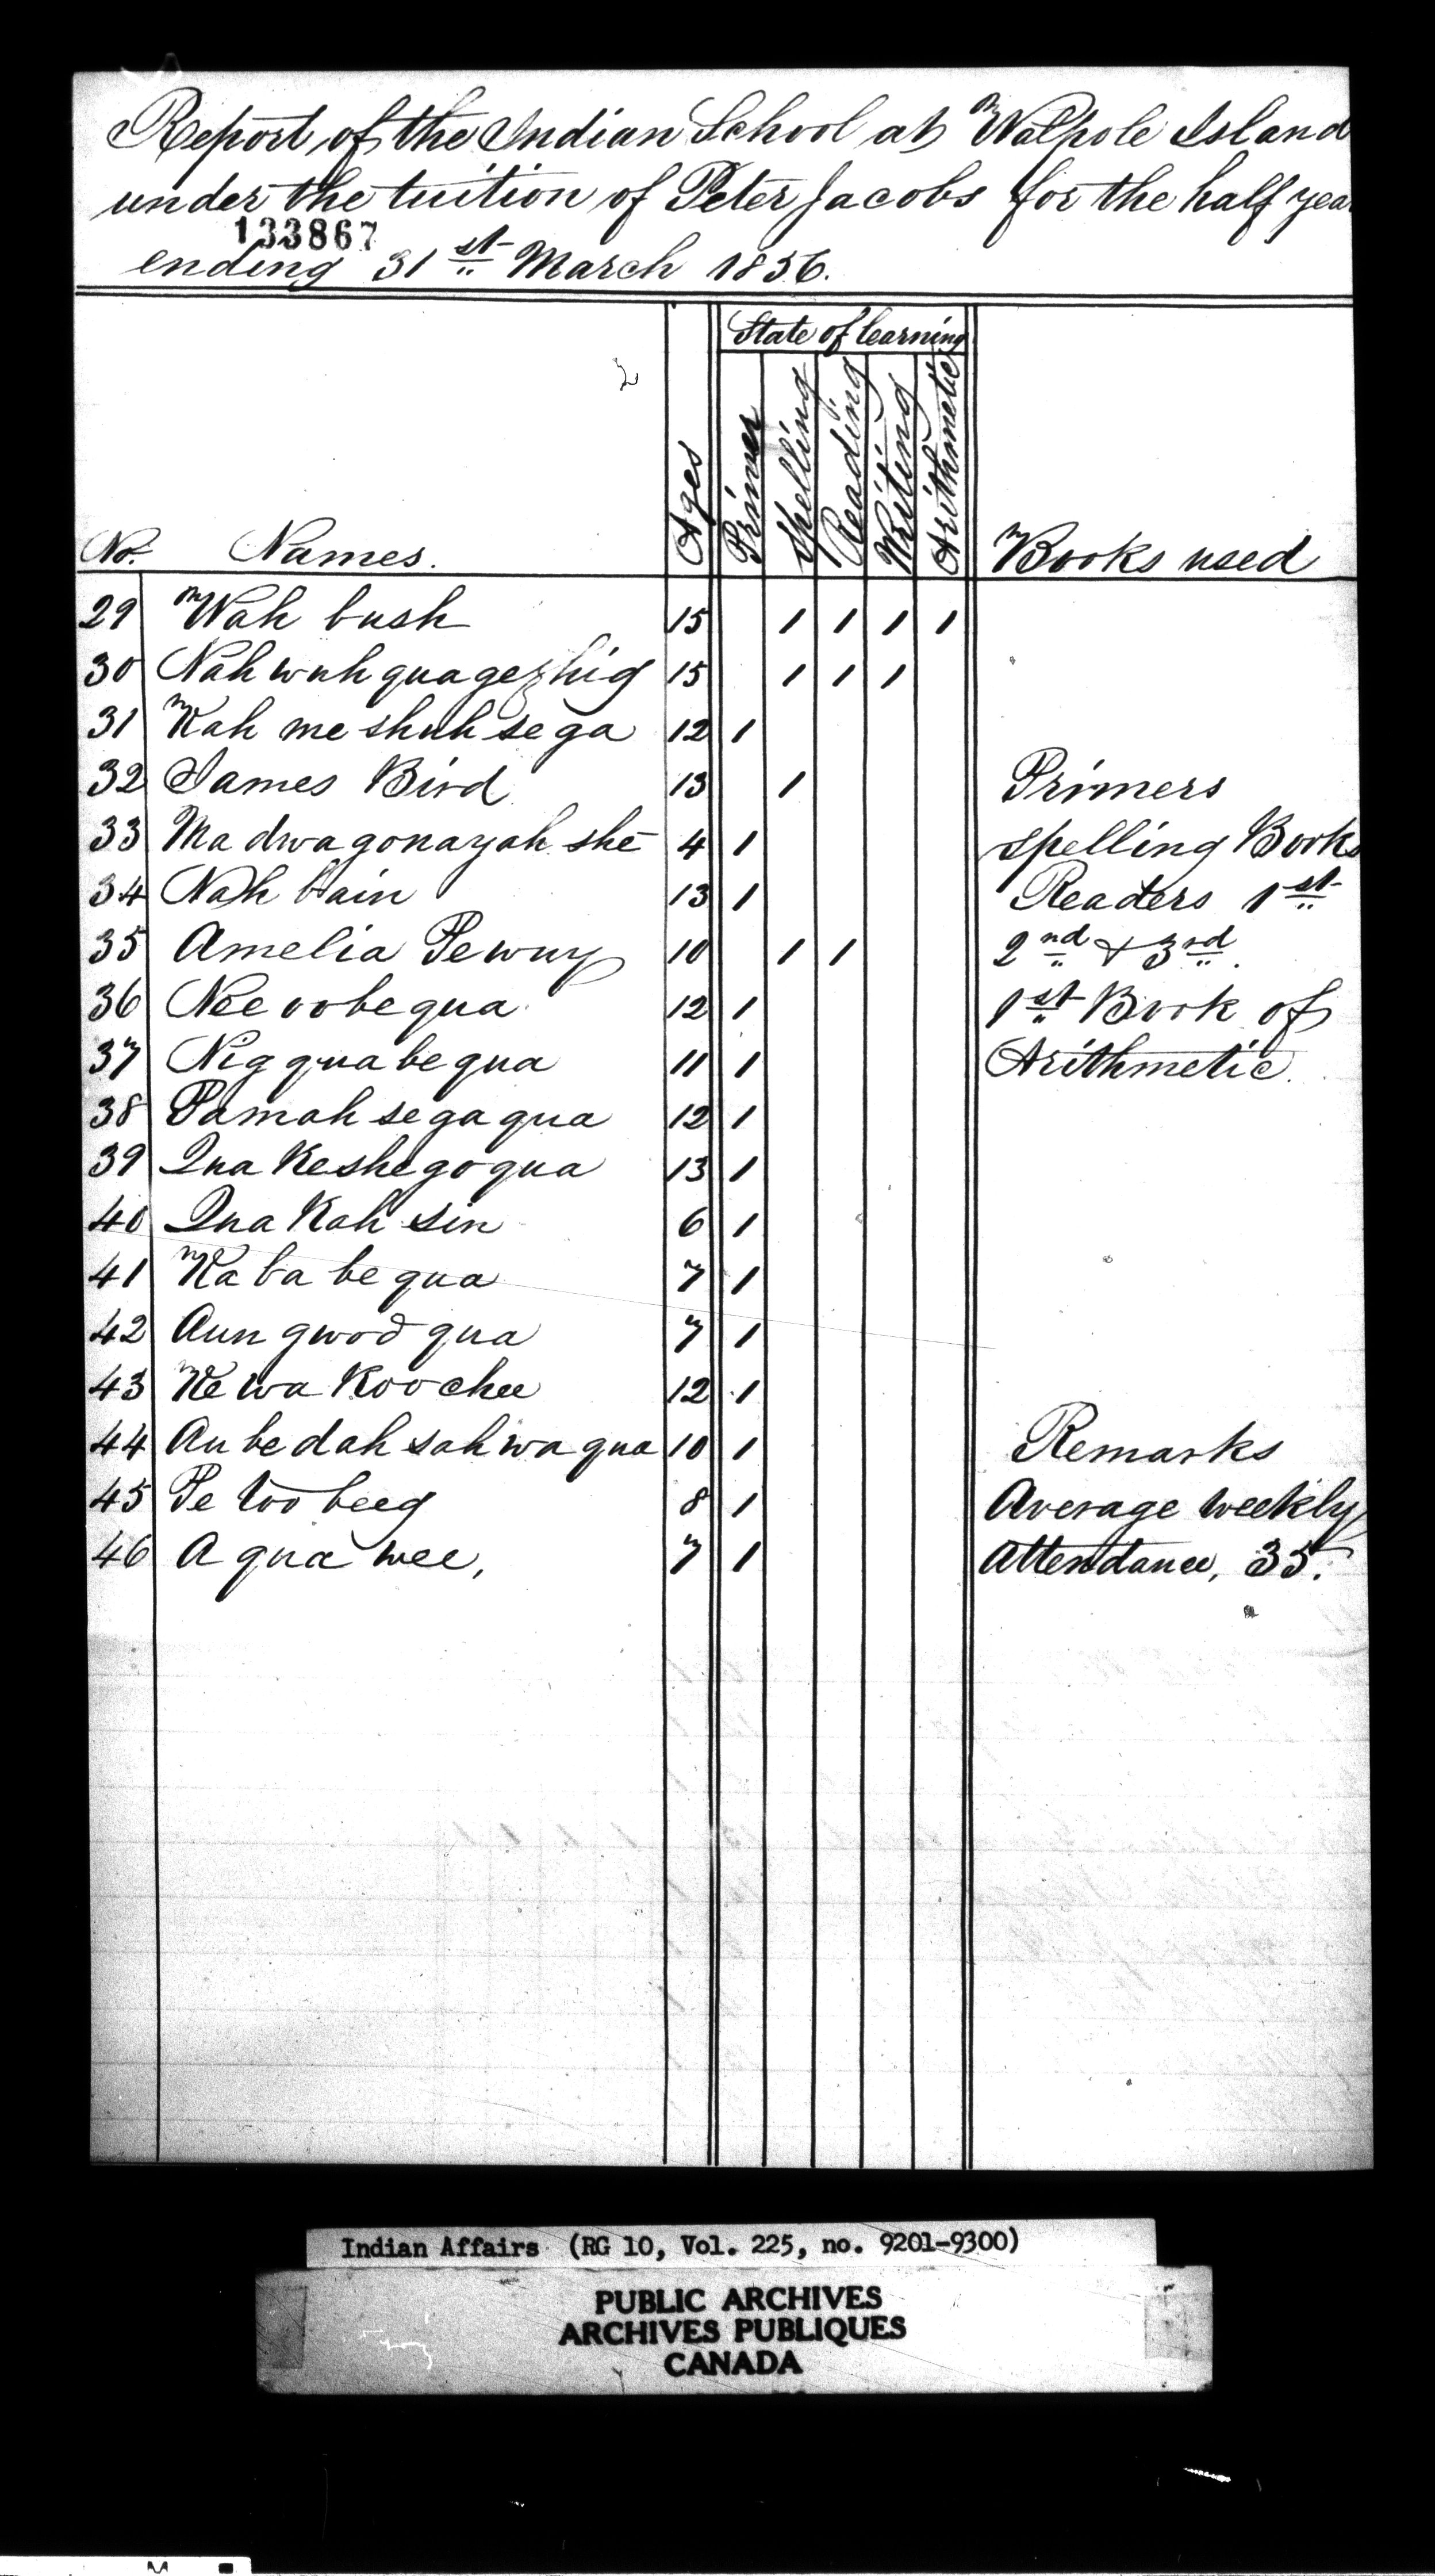 Report of the Indian School at Walpole Island
under the tuition of Peter Jacobs for the half year
133867
ending 31st March 1856.
State of learning
No. Names. Ages Primer Spelling Reading Writing Arithmetic Books used
29 Wah bush 15 1 1 1 1
30 Nah wuh quagezhig 15 1 1 1
31 Kah me shuh se ga 12 1
32 James Bird 13 1 Primers
33 Ma dwa gonayah she 4 1 Spelling Books
34 Nah bain 13 1 Readers 1st
35 Amelia Pewny 10 1 1 2nd & 3rd.
36 Nee oobe qua 12 1 1st Book of
37 Nig qua be qua 11 1 Arithmetic.
38 Pamah se ga qua 12 1
39 Qua Keshe go qua 13 1
40 Qua Kah sin 6 1
41 Ka ba be qua 7 1
42 Aun gwod qua 7 1
43 Ke wa Koo chee 12 1
44 Au be dah sah wa qua 10 1 Remarks
45 Pe too beeg 8 1 Average weekly
46 A qua wee, 7 1 Attendance, 35.
Indian Affairs (RG 10, Vol. 225, no. 9201-9300)
PUBLIC ARCHIVES
ARCHIVES PUBLIQUES
CANADA